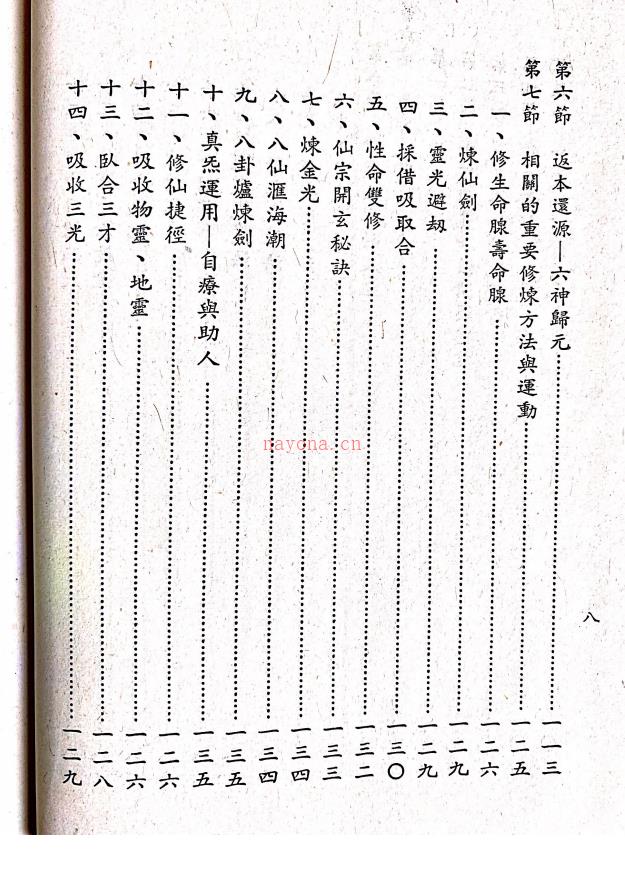 第六節 返本還源—六神歸元………一一三
第七節 相關的重要修煉方法與運動………一二五
一、修生命腺壽命腺………一二六
二、煉仙劍………一二九
三、靈光避刼………一二九
四、採借吸取合………一三〇
五、性命雙修………一三二
六、仙宗開玄秘訣………一三三
七、煉金光………一三四
八、八仙滙海潮………一三四
九、八卦爐煉劍………一三五
十、真炁運用—自療與助人………一三五
十一、修仙捷徑………一二六
十二、吸收物靈、地靈………一二六
十三、臥合三才………一二八
十四、吸收三光………一二九
八
nayona.cn